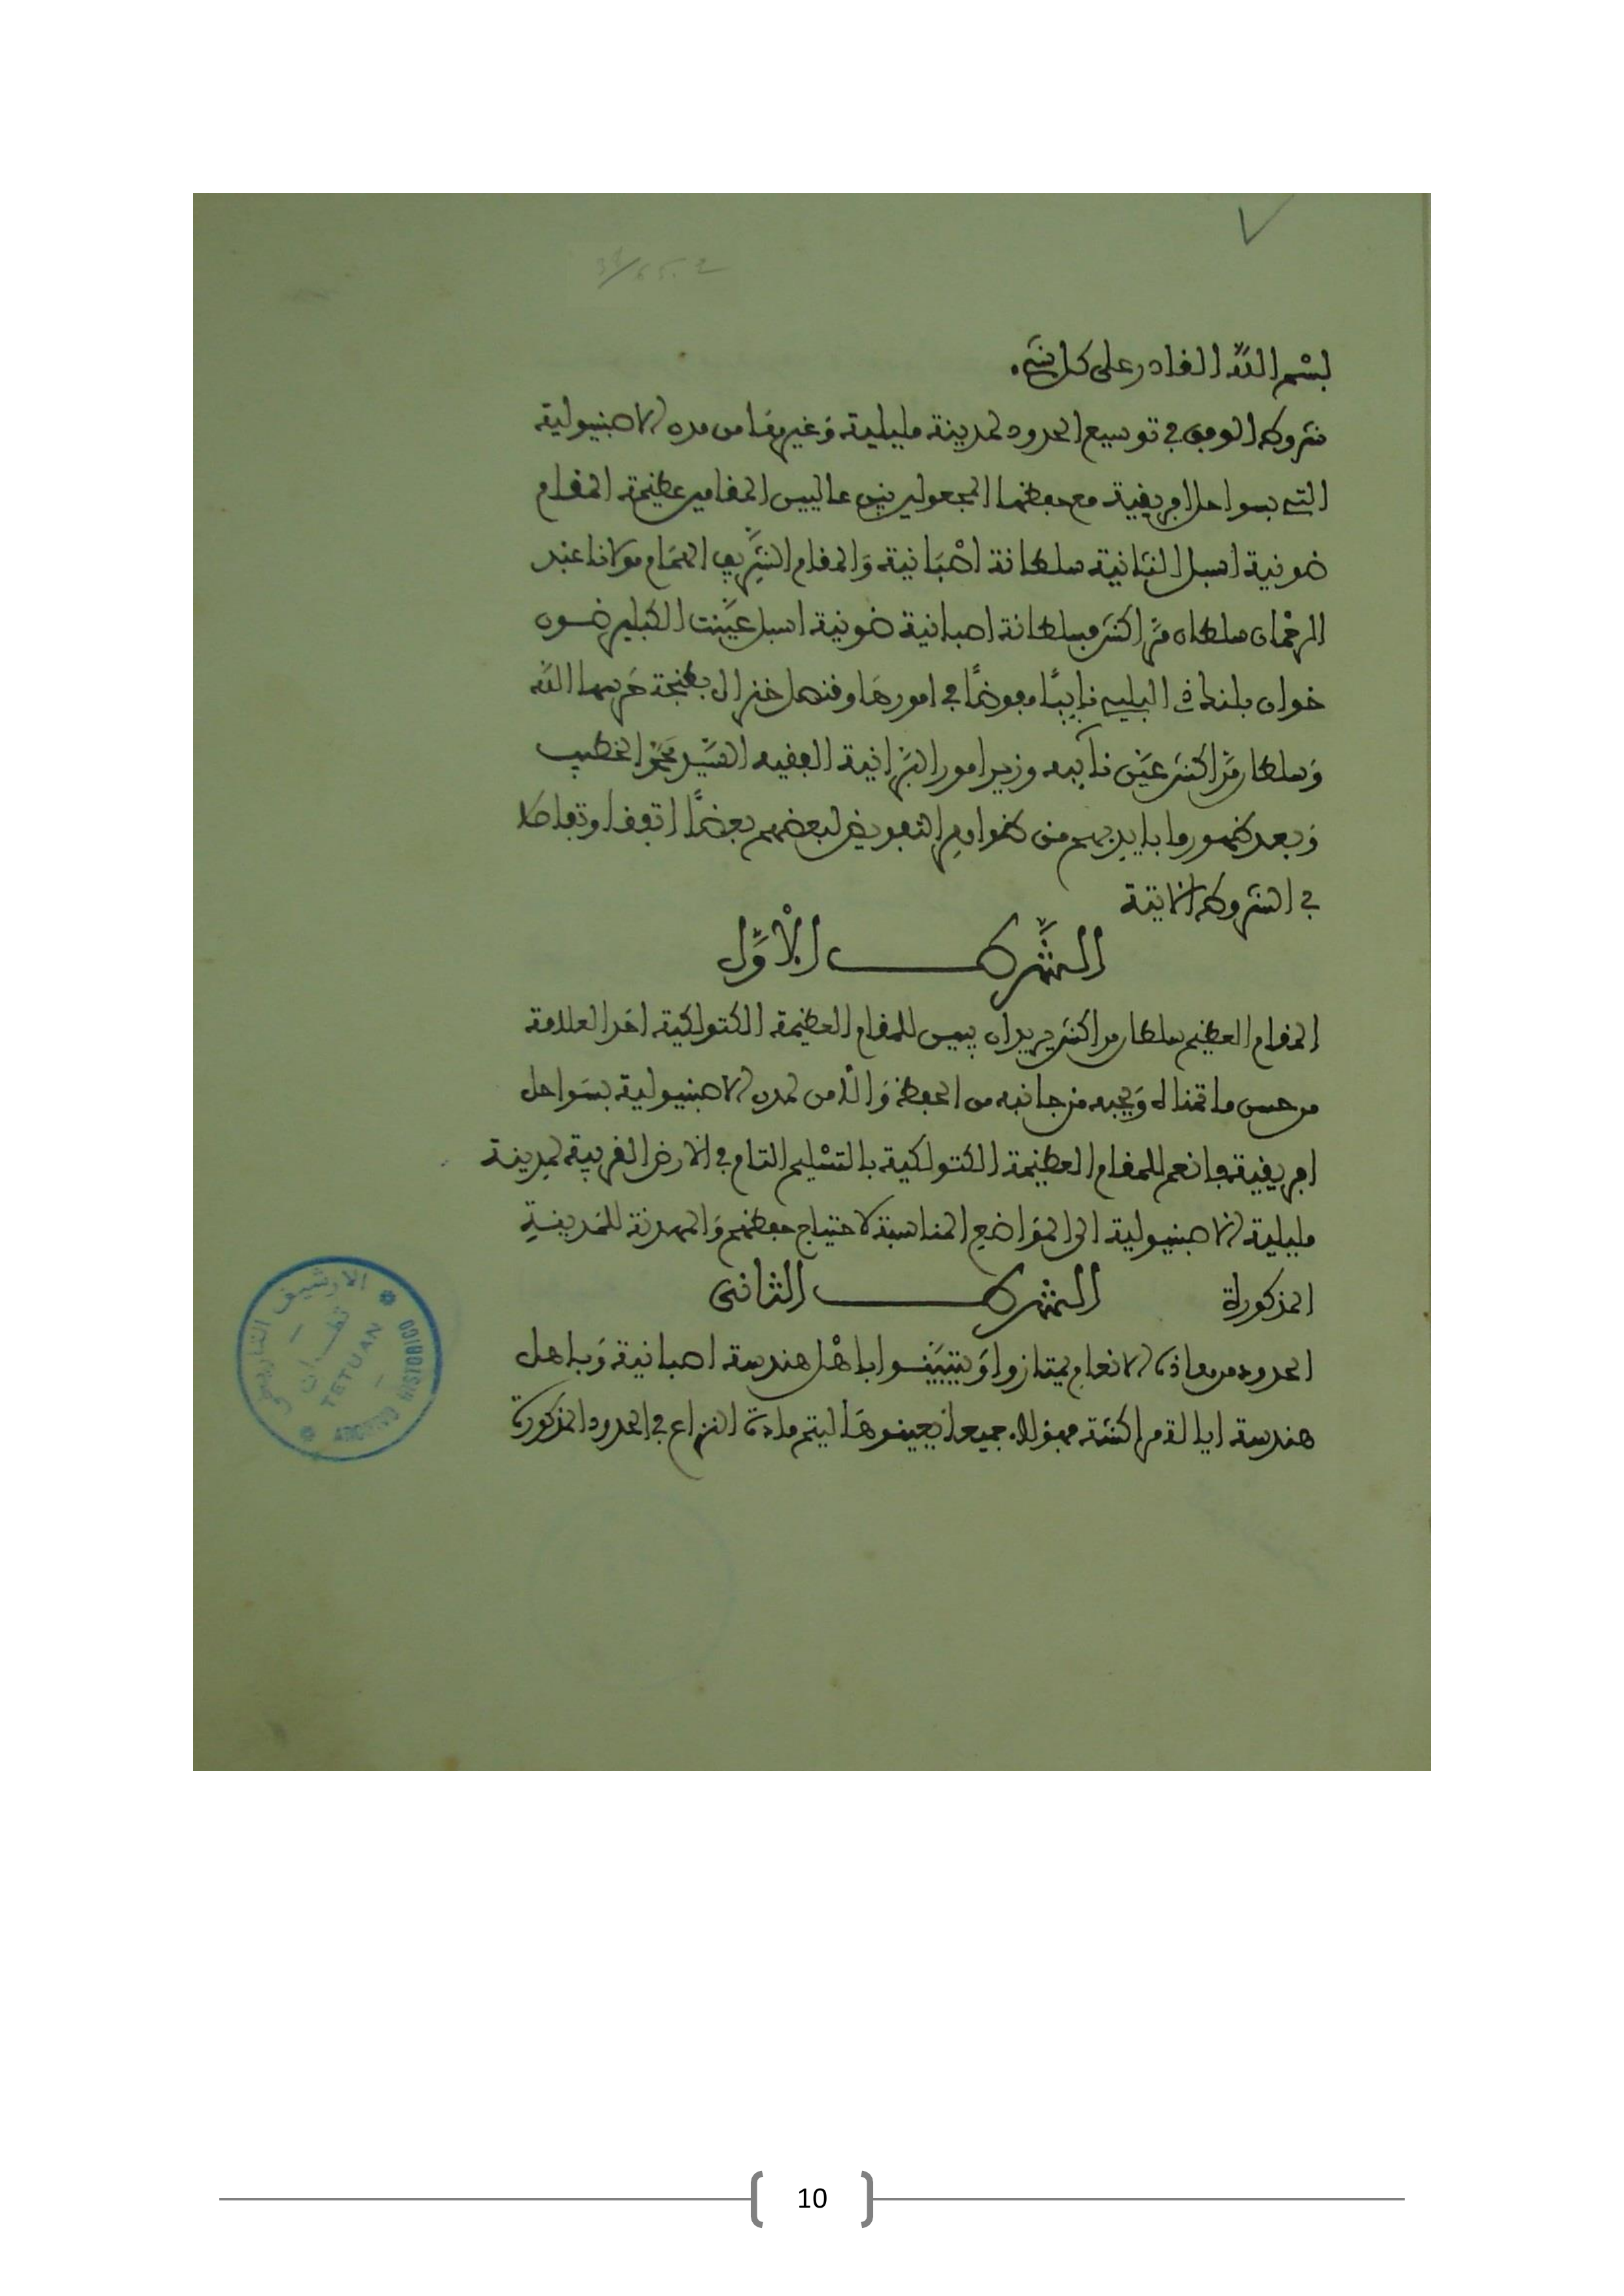 بسم الله القادر على كل شيء.
شروط الوفق في توسيع الحدود لمدينة مليلية وغيرها من مدن الاصبنيولية
التي بسواحل افريقية مع حفظها المجعولين بين عاليين المقامين عظيمة المقام
ضونية اسبل الثانية سلطانة اصبانية والمقام الشريف الهمام مولانا عبد
الرحمان سلطان مراكش فسلطانة اصبانية ضونية اسبل عينت الكبلير ضون
خوان بلنك دى البلي نايبا مفوضا في امورها وقنصل خنرال بطنجة حرسها الله
وسلطان مراكش عين نائبه وزير امور البرانية الفقيه السيد محمد الخطيب
وبعد ظهور ما بايديهم من ظواهر التفويض لبعضهم بعضا اتفقا وتفاصلا
في الشروط الاتية
الشرط الاول
المقام العظيم سلطان مراكش يريد ان يبين للمقام العظيمة الكتولكية احد العلامة
من حسن ما تمنا له ويحبه من جانبه من الحفظ والامن لمدن الاصبنيولية بسواحل
افريقية فانعم للمقام العظيمة الكتولكية بالتسليم التام في الارض القريبة لمدينة
مليلية الاصبنيولية الى المواضع المناسبة لاحتياج حفظهم والمهدنة للمدينة
المذكوراة
الشرط الثانى
الحدود من هاذه الانعام يمتازوا ويتبينوا باهل هندسة اصبانية وباهل
هندسة ايالة مراكشة فهؤلاء جميعا يعينوها ليتم مادة النزاع في الحدود المذكورة
الارشيف التاريخي
تطــوان
TETUAN
ARCHIVO HISTORICO
10